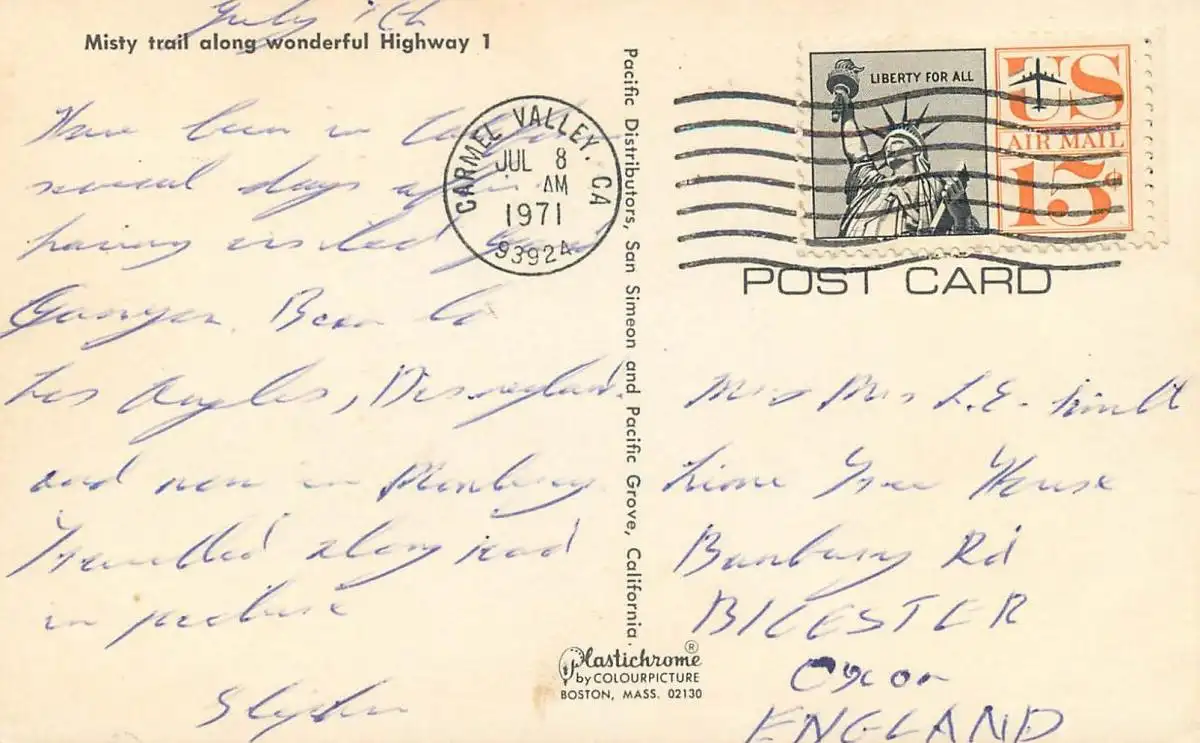 July 7th
Misty trail along wonderful Highway 1
Have been in
several days after
having visited Grand
Canyon. Been to
Los Angles, Disneyland
and now in
Travelled along road
in picture
Stephen
Pacific Distributors, San Simeon and Pacific Grove, California.
CARMEL VALLEY, CA
JUL 8
AM
1971
93924
LIBERTY FOR ALL
US
AIR MAIL
15c
POST CARD
Mr & Mrs L.E.
Lime Tree House
Banbury Rd
BICESTER
Oxon
ENGLAND
Plastichrome ®
by COLOURPICTURE
BOSTON, MASS. 02130